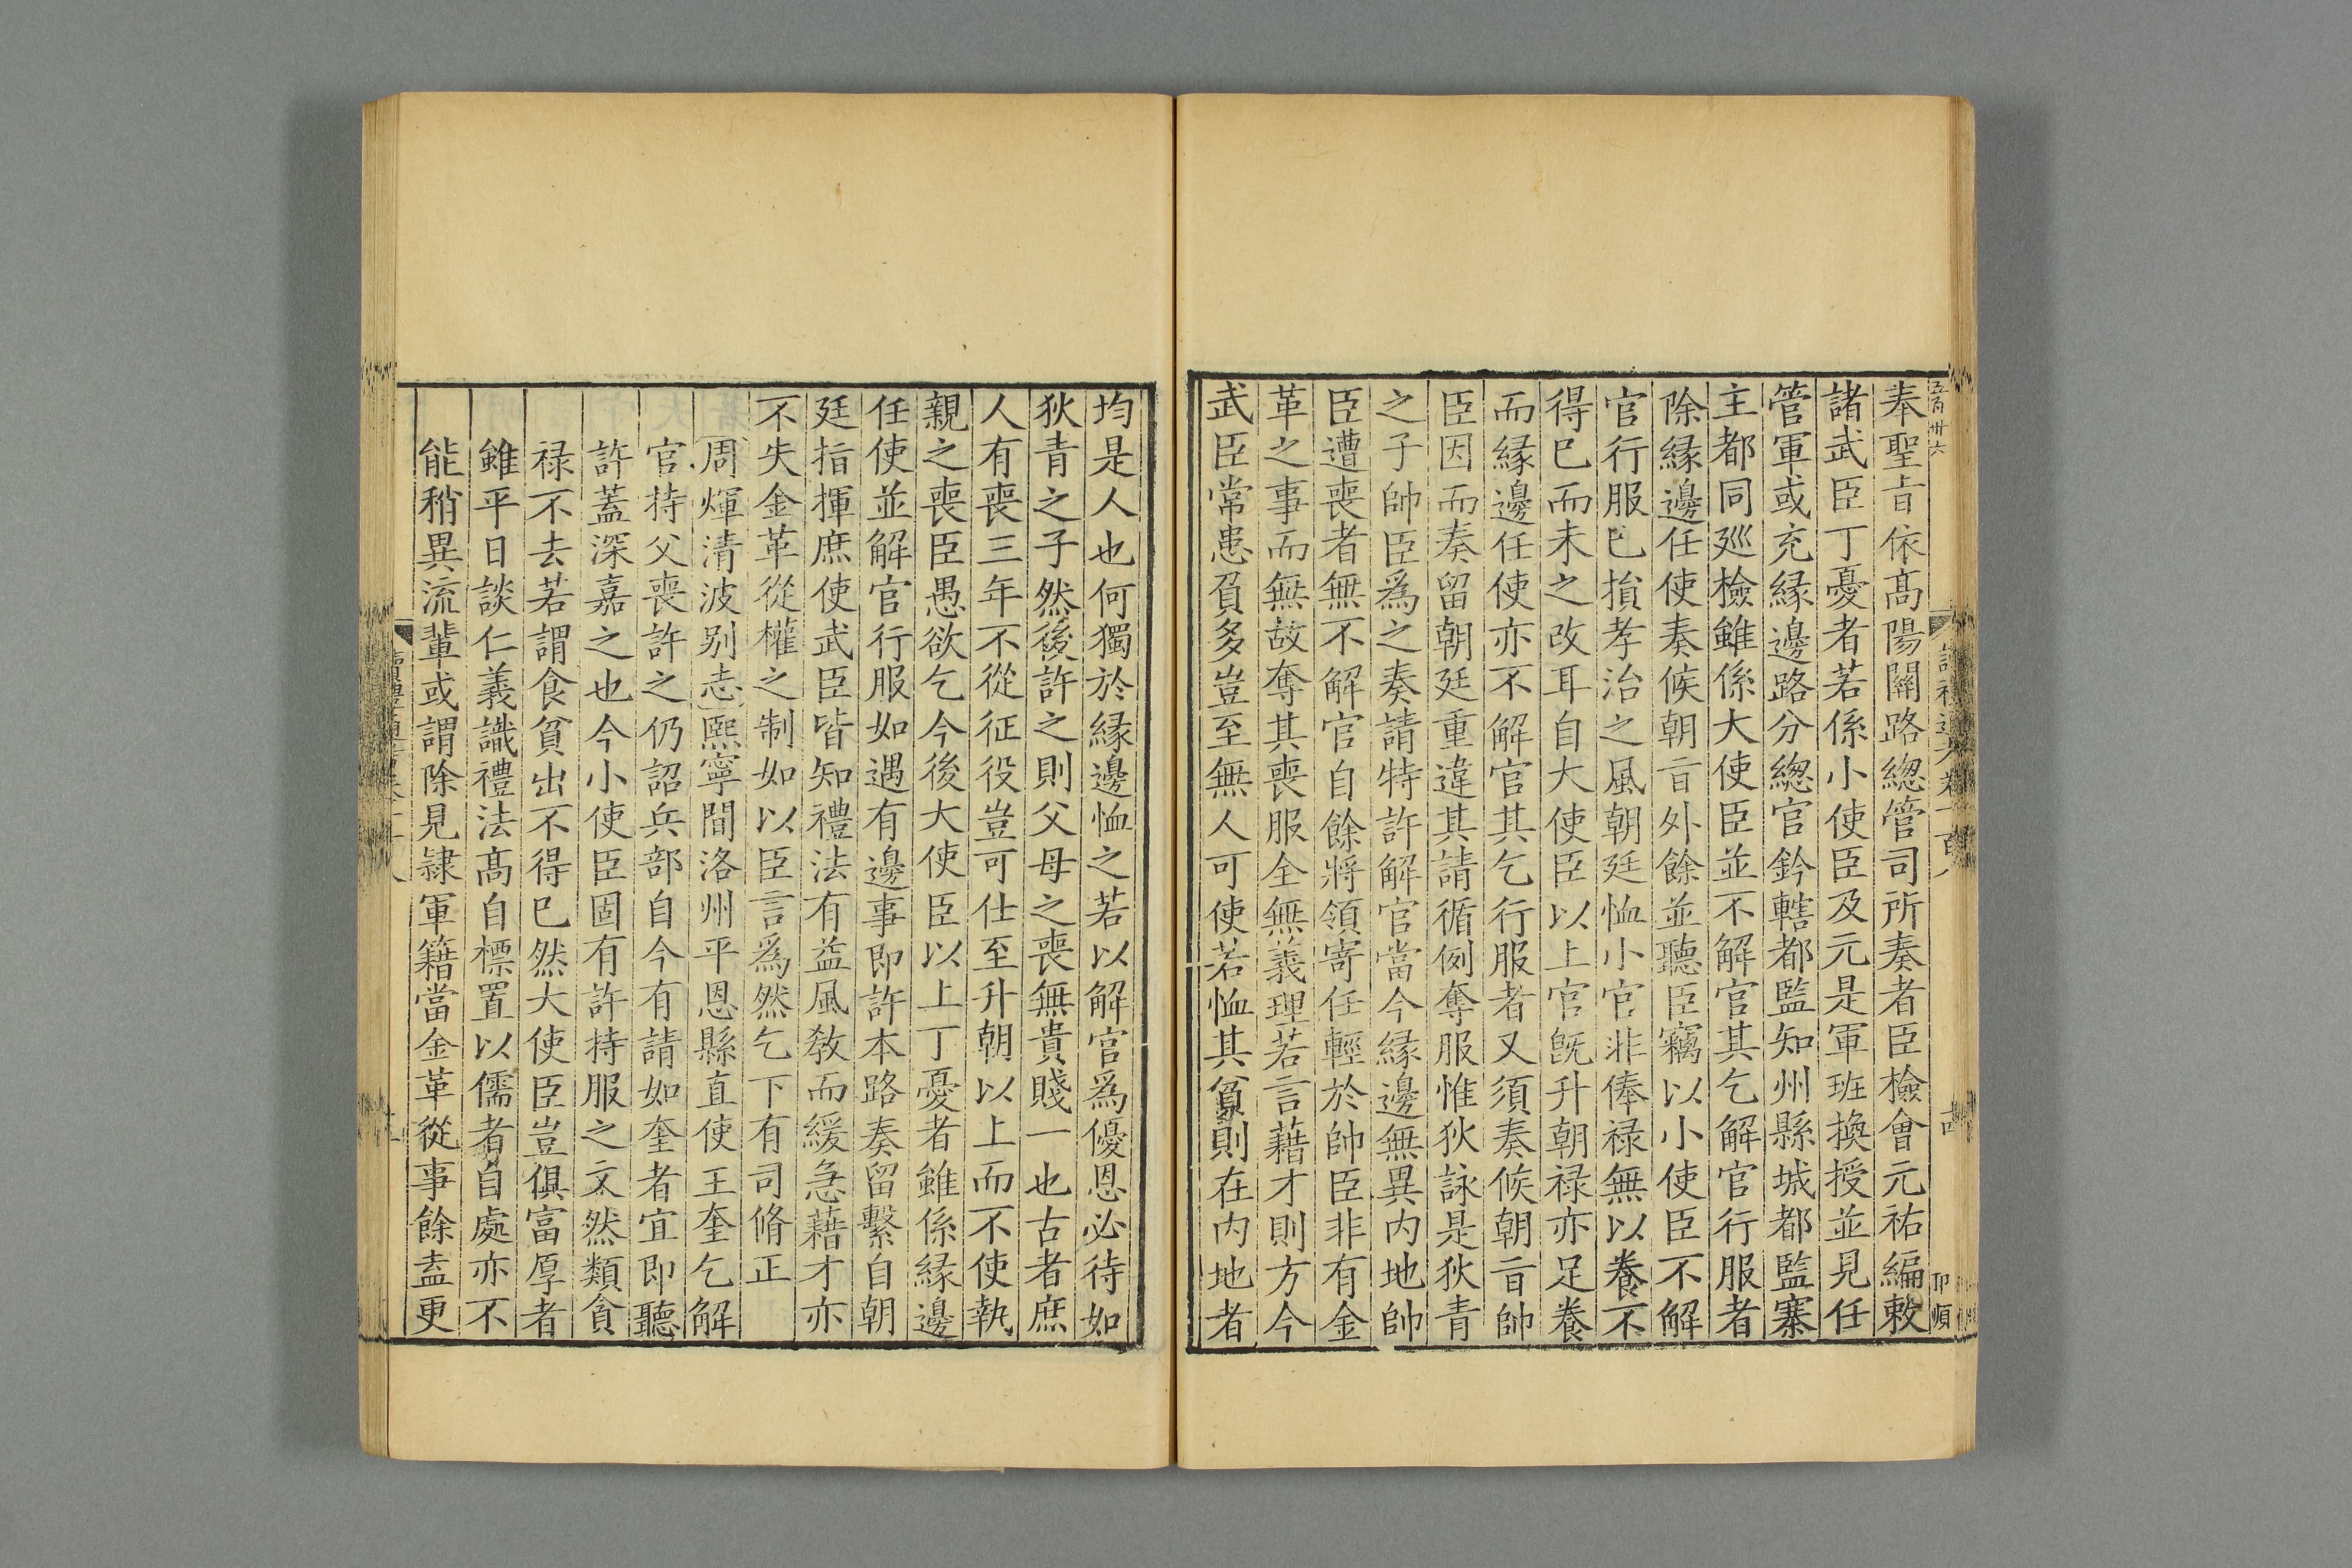 奉聖旨依髙陽關路緫管司所奏者臣檢會元祐編敕
諸武臣丁憂者若係小使臣及元是軍班換授並見任
管軍或充緣邊路分緫官鈐轄都監知州縣城都監寨
主都同廵檢雖係大使臣並不解官其乞解官行服者
除緣邊任使奏候朝旨外餘並聽臣竊以小使臣不解
官行服已損孝治之風朝廷恤小官非俸禄無以養不
得已而未之改耳自大使臣以上官旣升朝禄亦足養
而緣邊任使亦不解官其乞行服者又須奏候朝旨帥
臣因而奏留朝廷重違其請循例奪服惟狄詠是狄青
之子帥臣爲之奏請特許解官當今緣邊無異内地帥
臣遭喪者無不解官自餘將領寄任輕於帥臣非有金
革之事而無故奪其喪服全無義理若言藉才則方今
武臣常患員多豈至無人可使若恤其貧則在内地者
均是人也何獨於緣邊恤之若以解官爲優恩必待如
狄青之子然後許之則父母之喪無貴賤一也古者庶
人有喪三年不從征役豈可仕至升朝以上而不使執
親之喪臣愚欲乞今後大使臣以上丁憂者雖係緣邊
任使並解官行服如遇有邊事即許本路奏留繫自朝
廷指揮庶使武臣皆知禮法有益風教而緩急藉才亦
不失金革從權之制如以臣言爲然乞下有司脩正
周煇清波别志熙寧間洺州平恩縣直使王奎乞解
官持父喪許之仍詔兵部自今有請如奎者宜即聽
許蓋深嘉之也今小使臣固有許持服之文然類貪
禄不去若謂食貧出不得已然大使臣豈俱富厚者
雖平日談仁義識禮法髙自標置以儒者自處亦不
能稍異流輩或謂除見隷軍籍當金革從事餘盍更